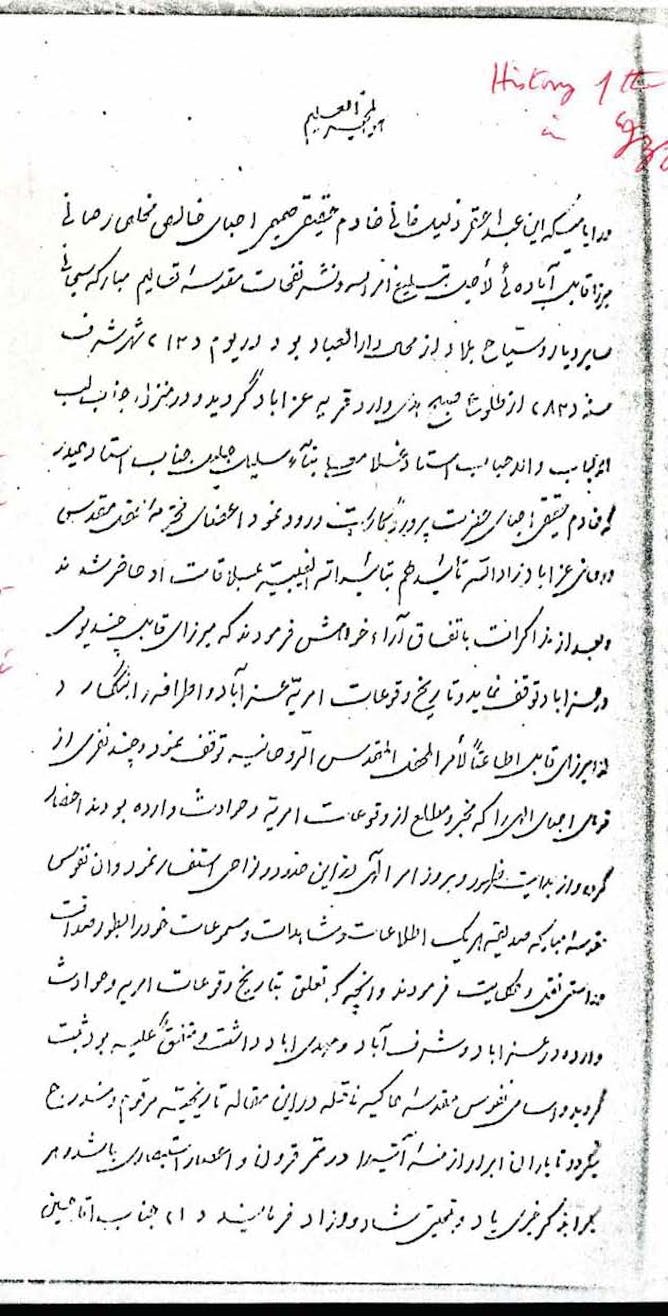 History of the
in
در ایامیکه این عبد احقر ذلیل فانی خادم حقیقی صمیمی احبای خالص مخلص رحمانی
میرزا قابل آباده ئی لأجل تبلیغ امرالله و نشر نفحات مقدسهٔ تعالیم مبارکه سبحانی
سایر دیار و سیاح بلاد از محل دارالعباد بود در یوم د ۱۳ ، شهر شرف
سنه د ۸۳ ، از طلوع صبح وارد قریه عزاباد گردید و در منزل جناب لب
الالباب استاد غلامرضا بنّاء سلیل جلیل جناب استاد حیدر
که خادم حقیقی احبای حضرت پروردگار است ورود نمود اعضای محترمه انجمن مقدس
روحانی عزاباد زاد الله تأییدهم بتأییداته الغیبیه بملاقات او حاضر شدند
و بعد از مذاکرات باتفاق آراء خواهش فرمودند که میرزای قابل چند یومی
در عزاباد توقف نماید و تاریخ وقوعات امریّه عزآباد و اطراف را بنگارد
لذا میرزای قابل اطاعتاً لأمر المحفل المقدس الروحانیه توقف نمود و چند نفری از
قدمای احبای الهی را که مخبر و مطلع از وقوعات امریّه و حوادث وارده بودند احضار
کرده و از بدایت ظهور و بروز امر الهی در این حدود از احبا استفسار نمود و آن نفوس
مقدسهٔ مبارکه صدیقه هر یک اطلاعات و مشاهدات و مسموعات خود را بطور صداقت
و راستی نقل و حکایت فرمودند و آنچه که تعلق بتاریخ وقوعات امریه و حوادث
وارده در عزاباد و شرف آباد و مهدی اباد داشت و متفق علیه بود ثبت
گردید و اسامی نفوس مقدسهٔ حاکیه ناقله در این مقاله تاریخیه مرقوم و مندرج
میگردد تا یاران ابرار ازمنهٔ آتیه را در ممر قرون و اعصار استبصاری باشد و هر
یک را بذکر خیری یاد و بتجلیل شاد و زاد فرمایند د ۱ ، جناب اقا حسین